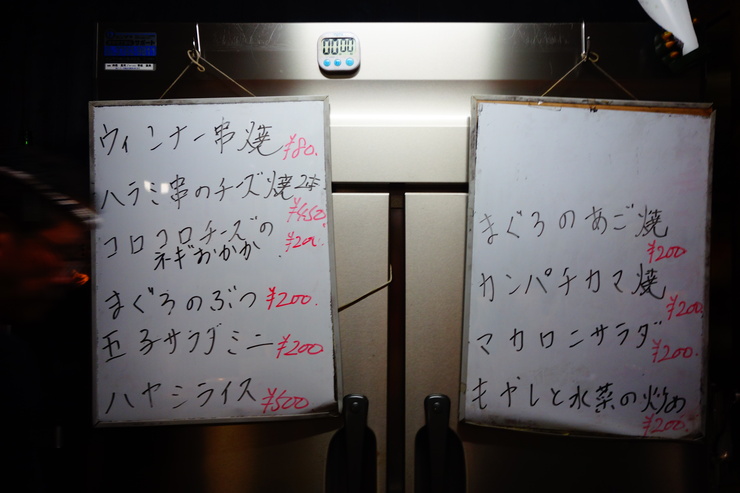 00:00
ウィンナー串焼 ¥80.
ハラミ串のチーズ焼2本 ¥450
コロコロチーズの
ネギおかか ¥200.
まぐろのぶつ ¥200.
玉子サラダミニ ¥200
ハヤシライス ¥500
まぐろのあご焼
¥200
カンパチカマ焼
¥200
マカロニサラダ
¥200
もやしと水菜の炒め
¥200